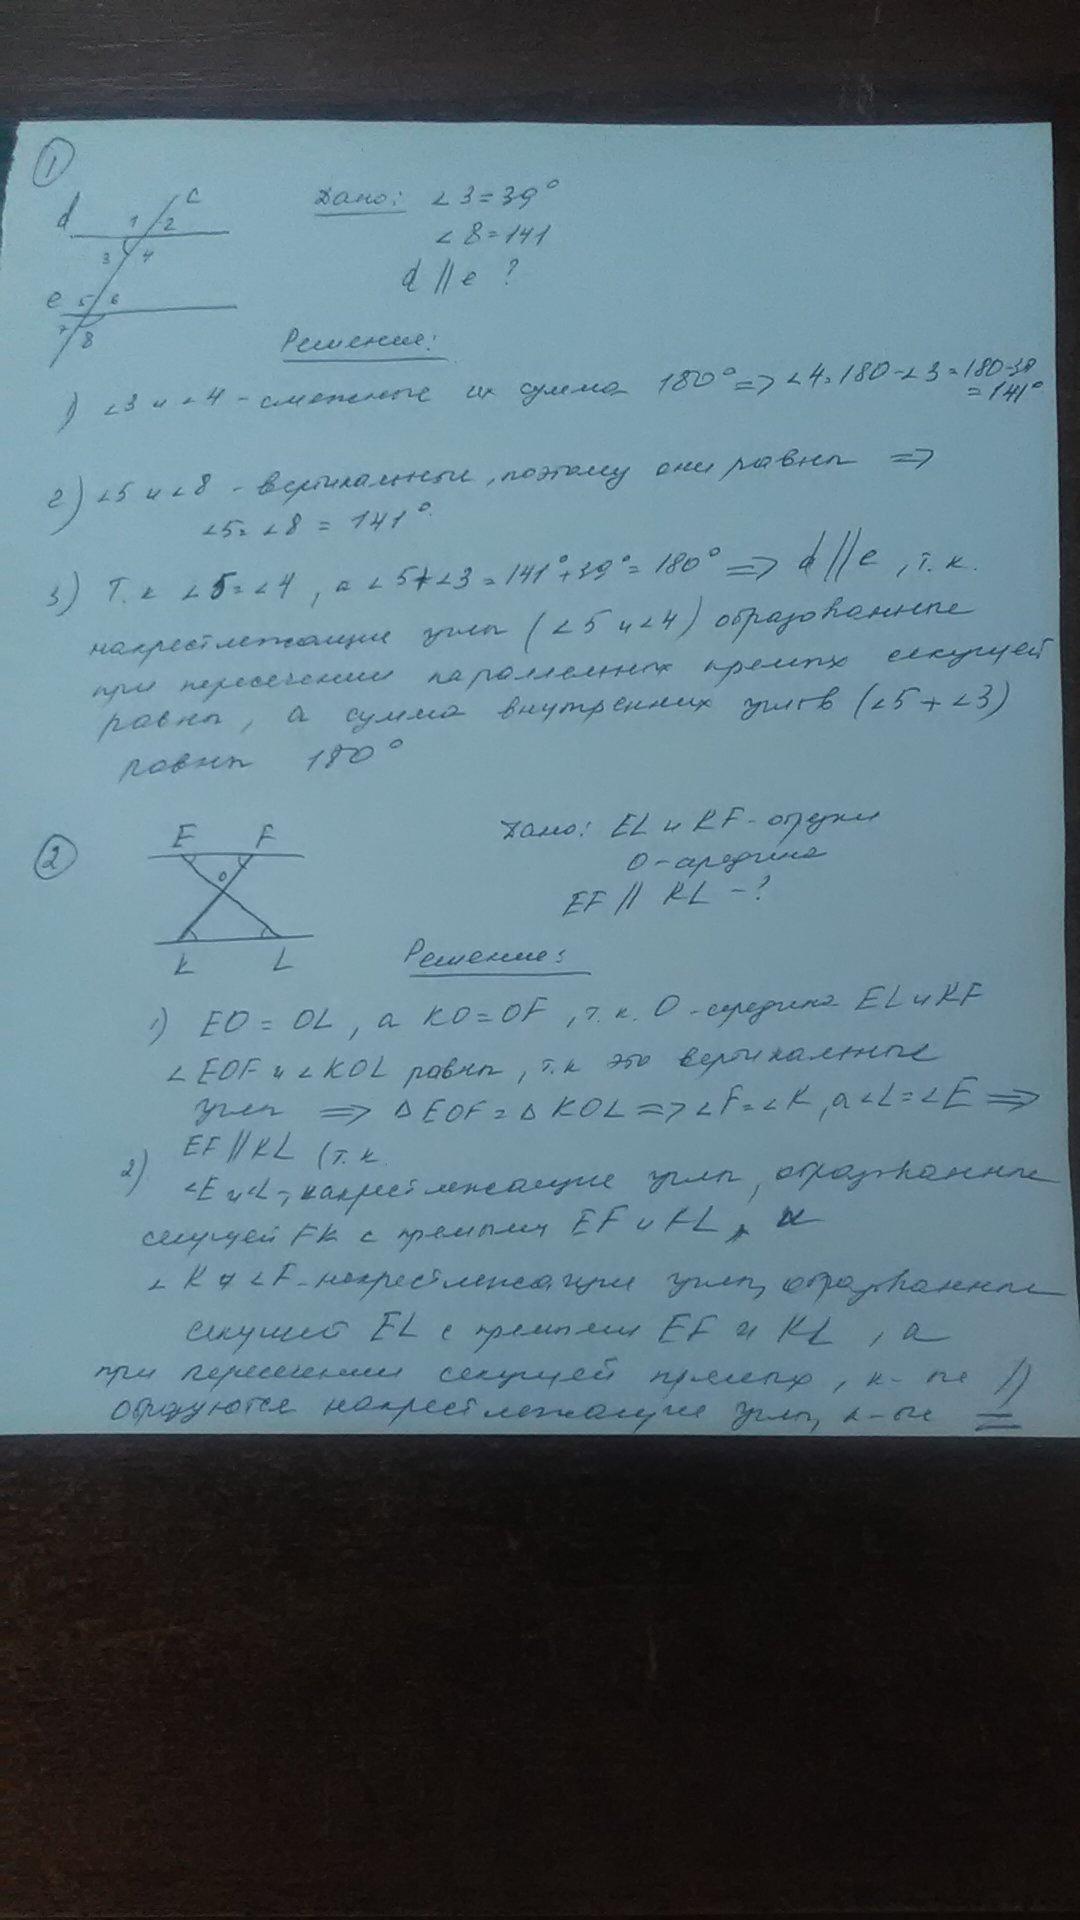 1
d c
1 2
3 4
e 5 6
7 8
Дано: ∠3=39°
∠8=141
d || e ?
Решение:
1) ∠3 и ∠4 - смежные их сумма 180° => ∠4=180-∠3=180-39
=141°
2) ∠5 и ∠8 - вертикальные, поэтому они равны =>
∠5=∠8 = 141°.
3) Т.к ∠5=∠4, а ∠5+∠3=141°+39°=180° => d||e, т.к.
накрестлежащие углы (∠5 и ∠4) образованные
при пересечении параллельных прямых секущей
равны, а сумма внутренних углов (∠5+∠3)
равны 180°
2
E F
O
K L
Дано: EL и KF - отрезки
O - средина
EF || KL - ?
Решение:
1) EO = OL, а KO=OF, т.к. O - середина EL и KF
∠EOF и ∠KOL равны, т.к это вертикальные
углы => △EOF=△KOL=>∠F=∠K, а ∠L=∠E =>
EF||KL (т.к
2) ∠E и ∠L, накрестлежащие углы, образованные
секущей FK с прямыми EF и KL, и
∠K и ∠F-накрестлежащие углы, образованные
секущей EL с прямыми EF и KL, а
при пересечении секущей прямых, к-ые ||
образуются накрестлежащие углы, к-ые =